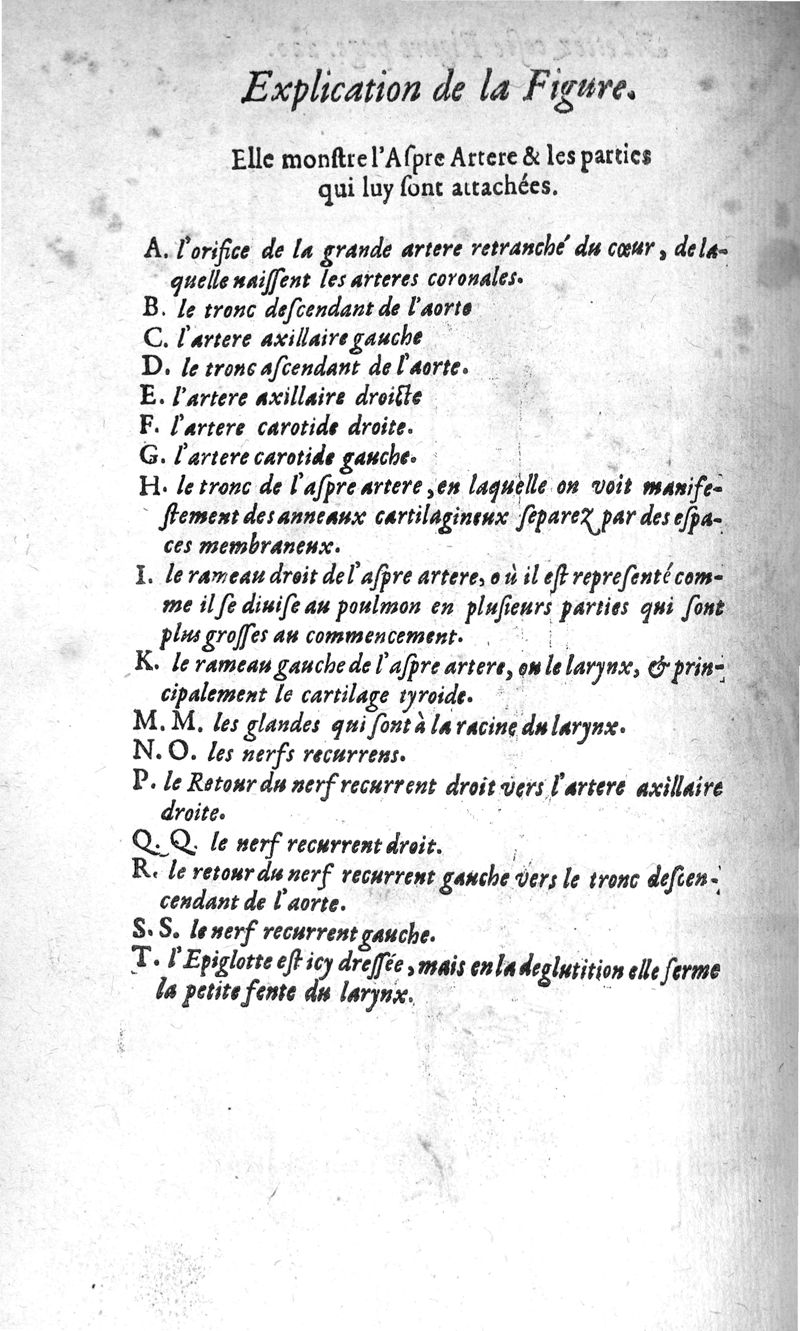 Explication de la Figure.
Elle monſtre l'Aſpre Artere & les parties
qui luy ſont attachées.
A. l'orifice de la grande artere retranché du cœur, de la-
quelle naiſſent les arteres coronales.
B. le tronc deſcendant de l'aorte
C. l'artere axillaire gauche
D. le tronc aſcendant de l'aorte.
E. l'artere axillaire droicte
F. l'artere carotide droite.
G. l'artere carotide gauche.
H. le tronc de l'aſpre artere, en laquelle on voit manife-
ſtement des anneaux cartilagineux ſeparez par des eſpa-
ces membraneux.
I. le rameau droit de l'aſpre artere, où il eſt repreſenté com-
me il ſe diuiſe au poulmon en pluſieurs parties qui ſont
plus groſſes au commencement.
K. le rameau gauche de l'aſpre artere, ou le larynx, & prin-
cipalement le cartilage tyroide.
M. M. les glandes qui ſont à la racine du larynx.
N. O. les nerfs recurrens.
P. le Retour du nerf recurrent droit vers l'artere axillaire
droite.
Q. Q. le nerf recurrent droit.
R. le retour du nerf recurrent gauche vers le tronc deſcen-
cendant de l'aorte.
S. S. le nerf recurrent gauche.
T. l'Epiglotte eſt icy dreſſée, mais en la deglutition elle ferme
la petite fente du larynx.